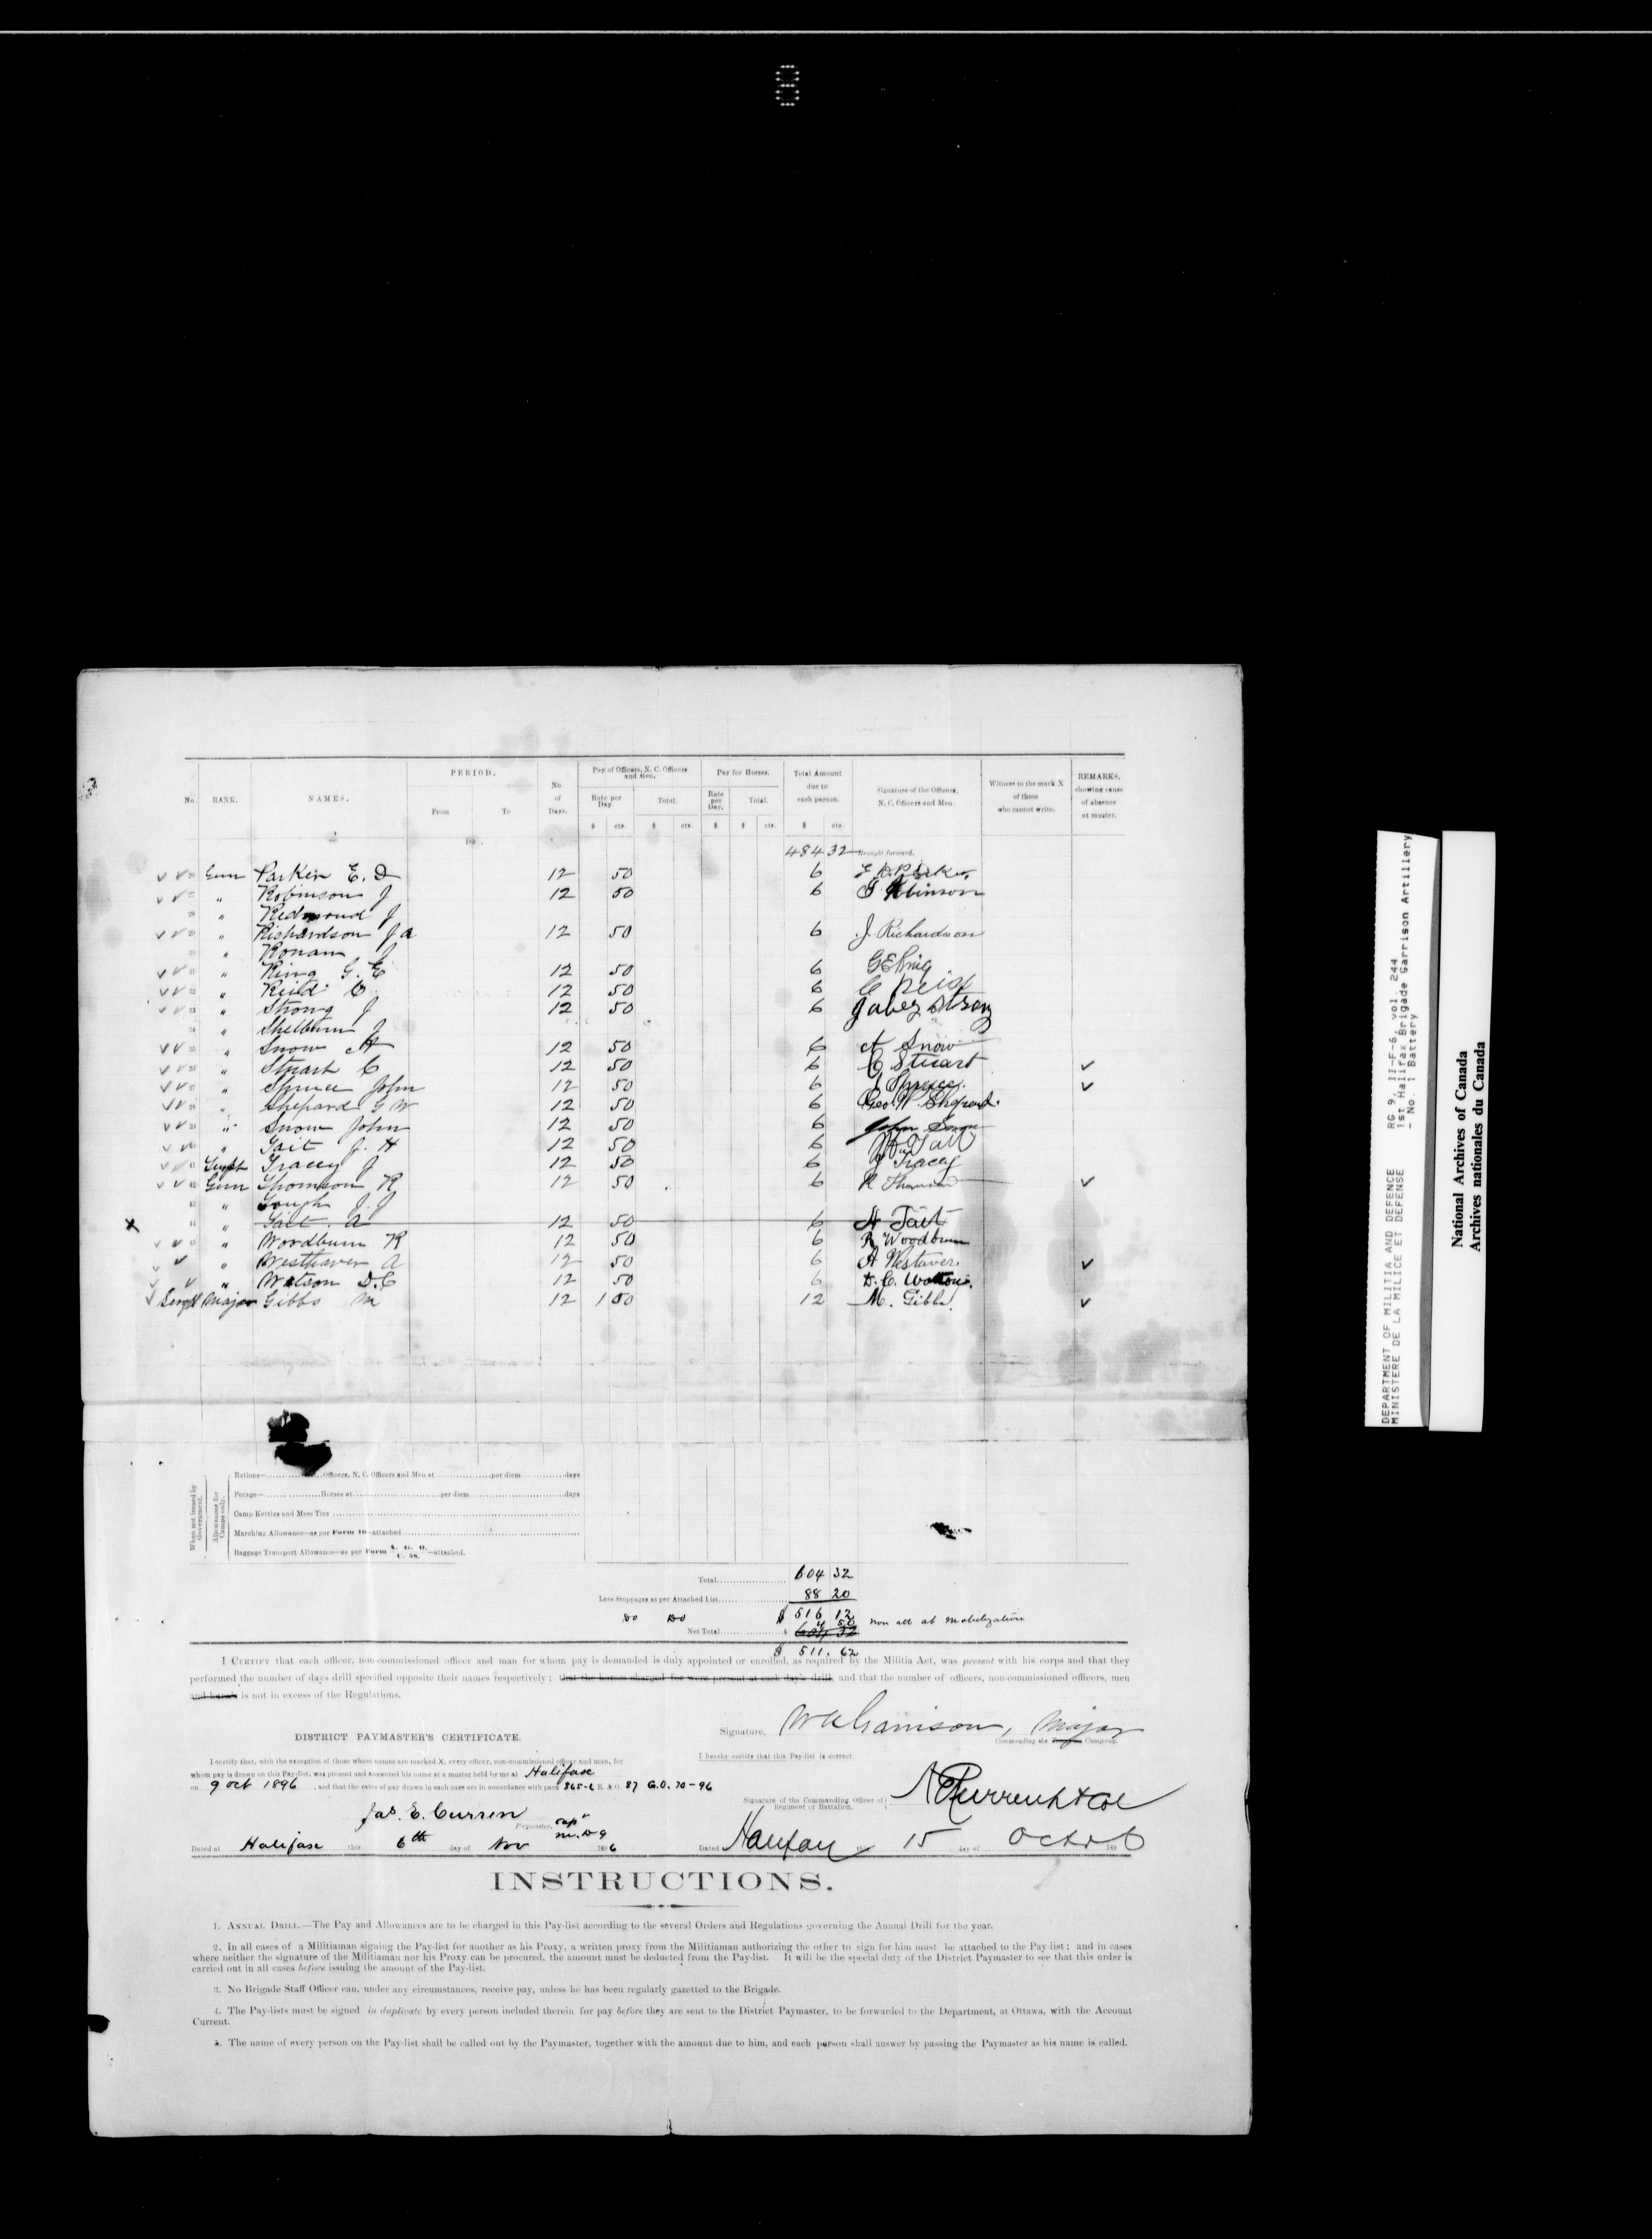 8
No. RANK. NAMES. PERIOD. From To No. of Days. Pay of Officers, N. C. Officers and Men. Rate per Day. Total. Pay for Horses. Rate per Day. Total. Total Amount due to each person. Signature of the Officers, N. C. Officers and Men. Witness to the mark X of those who cannot write. REMARKS, showing cause of absence at muster.
$ cts. $ cts. $ $ cts. $ cts.
189 484 32 Brought forward.
Gunr Parker E. D 12 50 6 E D Parker
" Robinson J 12 50 6 J Robinson
" Redmond J
" Richardson J a 12 50 6 J. Richardson
" Ronan J
" Ring G. E 12 50 6 G E Ring
" Reid C 12 50 6 C Reid
" Strong J 12 50 6 Jabez Strong
" Shelburn J
" Snow A 12 50 6 A Snow
" Stuart C 12 50 6 C Stuart ✓
" Spruce John 12 50 6 J Spruce. ✓
" Shepard G W 12 50 6 Geo. W. Shepard.
" Snow John 12 50 6 John Snow
" Tait J. H 12 50 6 Tait
Tracey J 12 50 6 J Tracey
Gunr Thomson R 12 50 6 R Thomson ✓
" Gough J. J
x " Tait. A 12 50 6 A Tait
" Woodburn R 12 50 6 R Woodburn
" Westhaver A 12 50 6 A Westaver ✓
" Watson D. C 12 50 6 D. C. Watson.
Sergt Major Gibbs M 12 1 00 12 M. Gibbs. ✓
When not issued by Government.
Allowances for Camps only.
Rations— Officers, N. C. Officers and Men at per diem days
Forage— Horses at per diem days
Camp Kettles and Mess Tins
Marching Allowance—as per Form 10—attached
Baggage Transport Allowance—as per Form A. G. O. C. 58.—attached.
Total 604 32
Less Stoppages as per Attached List 88 20
Do Do $ 516 12
4 50 non att at mobilization
Net Total $ 604 32
$ 511. 62
I CERTIFY that each officer, non-commissioned officer and man for whom pay is demanded is duly appointed or enrolled, as required by the Militia Act, was present with his corps and that they
performed the number of days drill specified opposite their names respectively; that the horses charged for were present at each day's drill, and that the number of officers, non-commissioned officers, men
and horses is not in excess of the Regulations.
Signature, Major
Commanding the Troop or Company.
DISTRICT PAYMASTER'S CERTIFICATE.
I hereby certify that this Pay-list is correct.
I certify that, with the exception of those whose names are marked X, every officer, non-commissioned officer and man, for
whom pay is drawn on this Pay-list, was present and answered his name at a muster held by me at Halifax
on 9 Oct 1896, and that the rates of pay drawn in each case are in accordance with para 865-6 R. & O. 87 G.O. 70-96
Signature of the Commanding Officer of Regiment or Battalion.
Jas. E. Curren Capt
Paymaster, M. D 9
Dated at Halifax this 6th day of Nov 1896
Dated Halifax this 15 day of Octr 1896
INSTRUCTIONS.
1. ANNUAL DRILL.—The Pay and Allowances are to be charged in this Pay-list according to the several Orders and Regulations governing the Annual Drill for the year.
2. In all cases of a Militiaman signing the Pay-list for another as his Proxy, a written proxy from the Militiaman authorizing the other to sign for him must be attached to the Pay-list; and in cases
where neither the signature of the Militiaman nor his Proxy can be procured, the amount must be deducted from the Pay-list. It will be the special duty of the District Paymaster to see that this order is
carried out in all cases before issuing the amount of the Pay-list.
3. No Brigade Staff Officer can, under any circumstances, receive pay, unless he has been regularly gazetted to the Brigade.
4. The Pay-lists must be signed in duplicate by every person included therein for pay before they are sent to the District Paymaster, to be forwarded to the Department, at Ottawa, with the Account
Current.
5. The name of every person on the Pay-list shall be called out by the Paymaster, together with the amount due to him, and each person shall answer by passing the Paymaster as his name is called.
DEPARTMENT OF MILITIA AND DEFENCE
MINISTERE DE LA MILICE ET DEFENSE
RG 9, II-F-6, vol. 244
1st Halifax Brigade Garrison Artillery
- No. 1 Battery
National Archives of Canada
Archives nationales du Canada